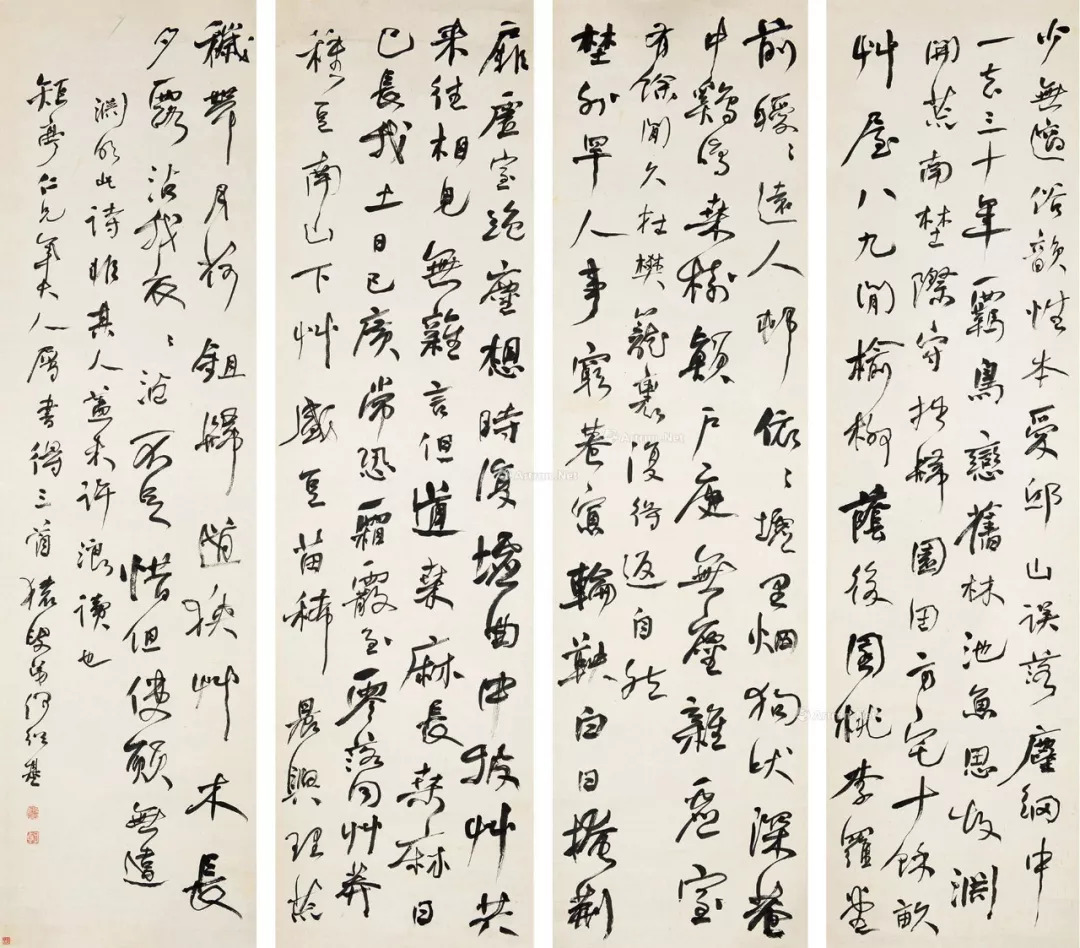 少無適俗韻性本愛邱山誤落塵網中
一去三十年羈鳥戀舊林池魚思故淵
開荒南埜際守拙歸園田方宅十餘畝
艸屋八九間榆柳蔭後園桃李羅堂
前曖〻遠人邨依〻墟里烟狗吠深巷
中雞鳴桑樹顛戶庭無塵雜虛室
有餘閒久在樊籠裏復得返自然
埜外罕人事窮巷寡輪鞅白日掩荊
扉虛室絕塵想時復墟曲中披艸共
來往相見無雜言但道桑麻長桑麻日
已長我土日已廣常恐霜霰至零落同艸莽
種豆南山下艸盛豆苗稀晨興理荒
穢帶月荷鉏歸道狹艸木長
夕露沾我衣〻沾不足惜但使願無違
淵明此詩非其人蓋未許浪讀也
仁兄年大人屬書得三首猿叟弟何紹基
Artron.Net
Artron.Net
Artron.Net